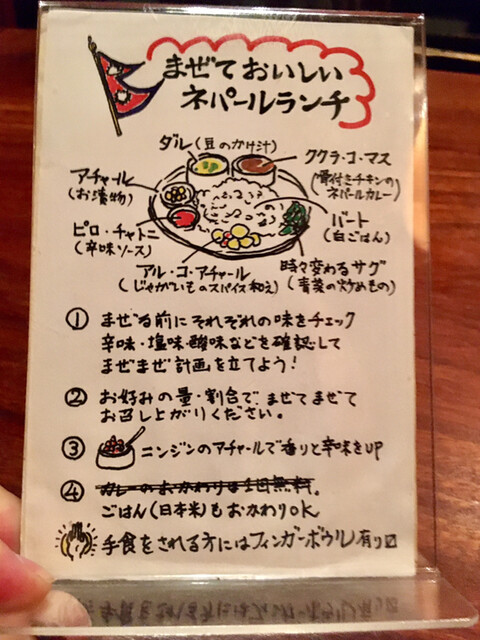 まぜておいしい
ネパールランチ
ダル(豆のかけ汁)
ククラ・コ・マス
(骨付きチキンの
ネパールカレー)
アチャール
(お漬物)
ピロ・チャトニ
(辛味ソース)
バート
(白ごはん)
アル・コ・アチャール
(じゃがいものスパイス和え)
時々変わるサグ
(青菜の炒めもの)
① まぜる前にそれぞれの味をチェック
辛味・塩味・酸味などを確認して
まぜまぜ計画を立てよう!
② お好みの量・割合で、まぜてまぜて
お召し上がりください。
③ ニンジンのアチャールで香りと辛味をUP
④ カレーのおかわりは1回無料。
ごはん(日本米)もおかわりOK
手食をされる方にはフィンガーボウル有り〼